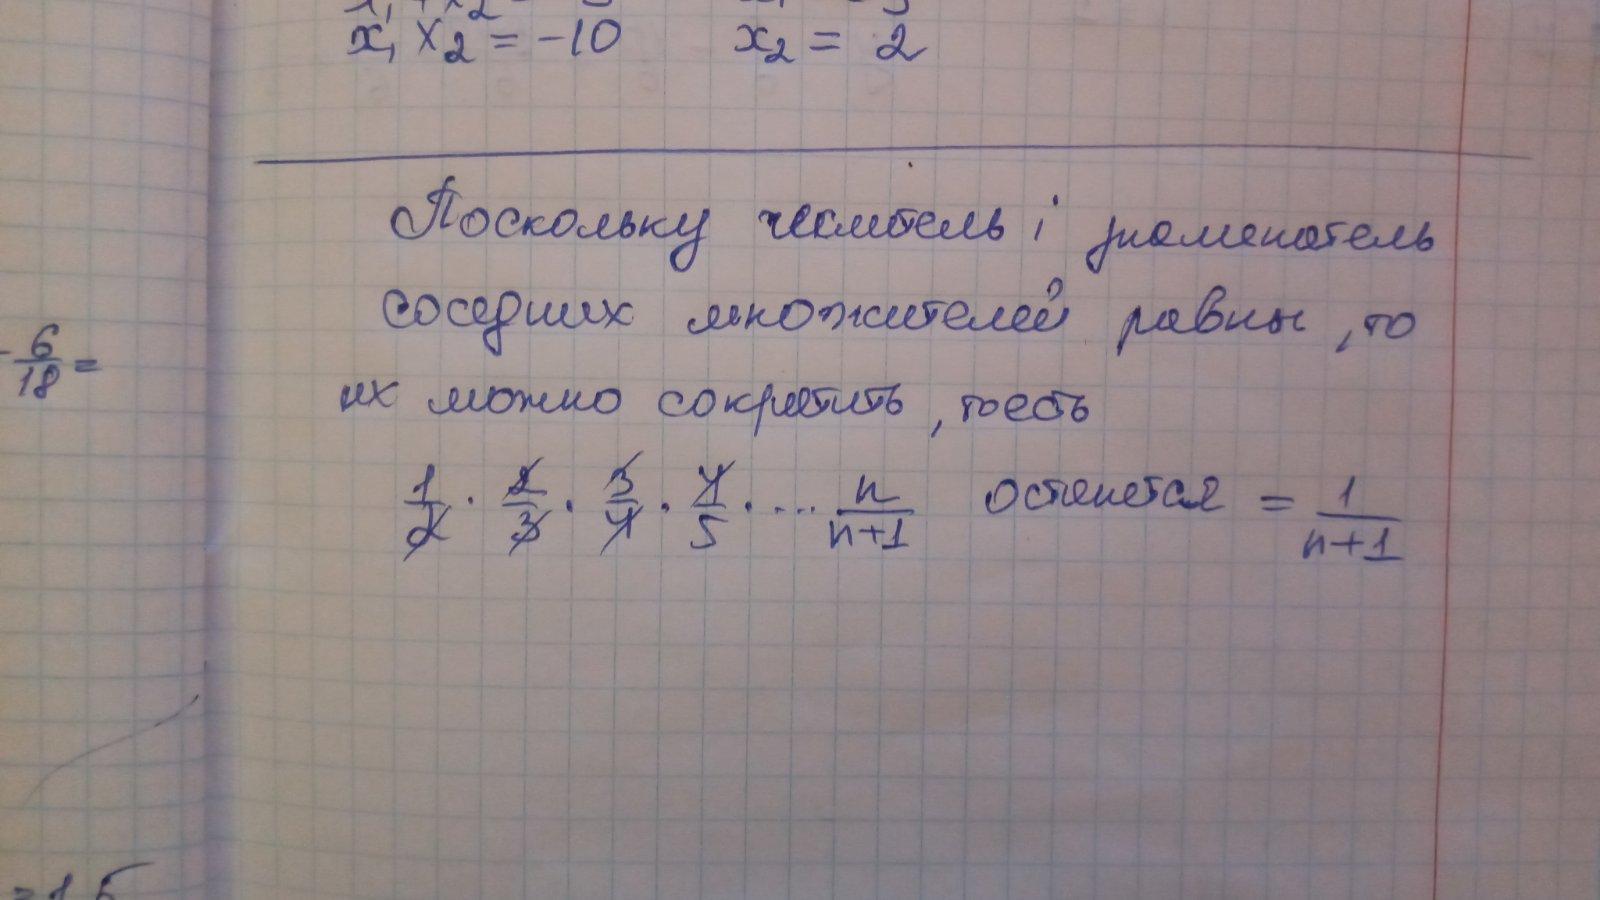 x₁ x₂ = -10 x₂ = 2
Поскольку числитель і знаменатель
соседних множителей равны, то
их можно сократить, тоесть
1/2 · 2/3 · 3/4 · 4/5 · ... n/n+1 останется = 1/n+1
6/18 =